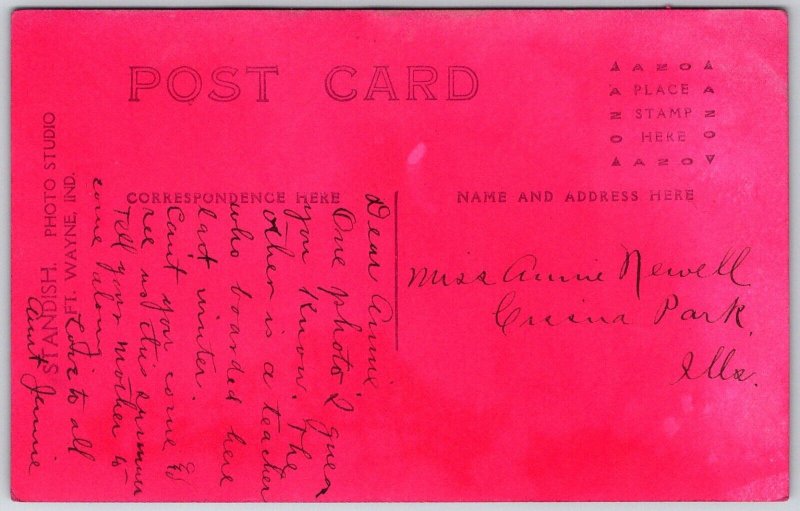 POST CARD
AZO
PLACE
STAMP
HERE
AZO
AZO
AZO
CORRESPONDENCE HERE
NAME AND ADDRESS HERE
STANDISH. PHOTO STUDIO
FT. WAYNE, IND.
Dear Annie
One photo I guess
you know. The
other is a teacher
who boarded here
last winter.
Can't you come &
see us this summer
Tell your mother to
come along
Love to all
Aunt Jennie
Miss Annie Newell
Cissna Park,
Ills.